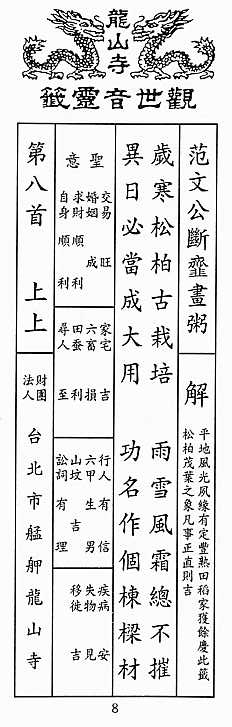 龍山寺
觀世音靈籤
范文公斷虀畫粥
解
平地風光夙緣有定豐熟田稻家獲餘慶此籤
松柏茂葉之象凡事正直則吉
歲寒松柏古栽培 雨雪風霜總不摧
異日必當成大用 功名作個棟樑材
聖意
交易 旺
婚姻 成
求財 順利
自身 順利
家宅 吉
六畜 損
田蚕 利
尋人 至
行人 有信
六甲 生男
山墳 吉
訟詞 有理
疾病 安
失物 見
移徙 吉
第八首 上上
財團
法人
台北市艋舺龍山寺
8